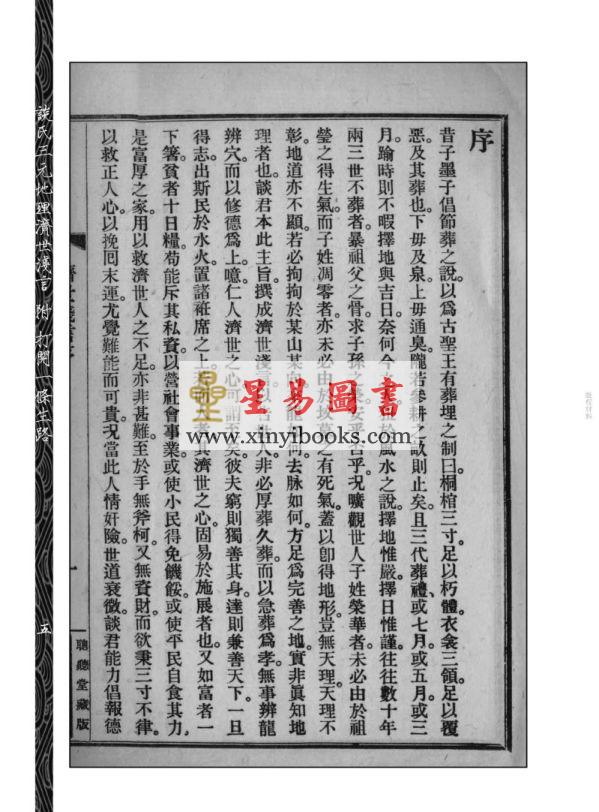 談氏五元地理濟世淺言 附 打開一條生路
五
序
昔子墨子倡節葬之說以為古聖王有葬埋之制曰桐棺三寸足以朽體衣衾三領足以覆
惡及其葬也下毋及泉上毋通臭隴若參耕之畝則止矣且三代葬禮或七月或五月或三
月踰時則不暇擇地與吉日奈何今之於風水之說擇地惟嚴擇日惟謹往往數十年
兩三世不葬者暴祖父之骨求子孫之安乎否乎況曠觀世人子姓榮華者未必由於祖
塋之得生氣而子姓凋零者亦未必由於墳墓之有死氣蓋以卽得地形豈無天理天理不
彰地道亦不顯若必拘拘於某山某向龍如何去脉如何方足為完善之地實非眞知地
理者也談君本此主旨撰成濟世淺言以告世人非必厚葬久葬而以急葬為孝無事辨龍
辨穴而以修德為上噫仁人濟世之心可謂至矣彼夫窮則獨善其身達則兼善天下一旦
得志出斯民於水火置諸袵席之上其濟世之心固易於施展者也又如富者一
下箸貧者十日糧苟能斥其私資以營社會事業或使小民得免饑餒或使平民自食其力
是富厚之家用以救濟世人之不足亦非甚難至於手無斧柯又無資財而欲秉三寸不律
以救正人心以挽囘末運尤覺難能而可貴况當此人情奸險世道衰微談君能力倡報德
一
聰聽堂藏版
星易圖書
www.xinyibooks.com
版權材料